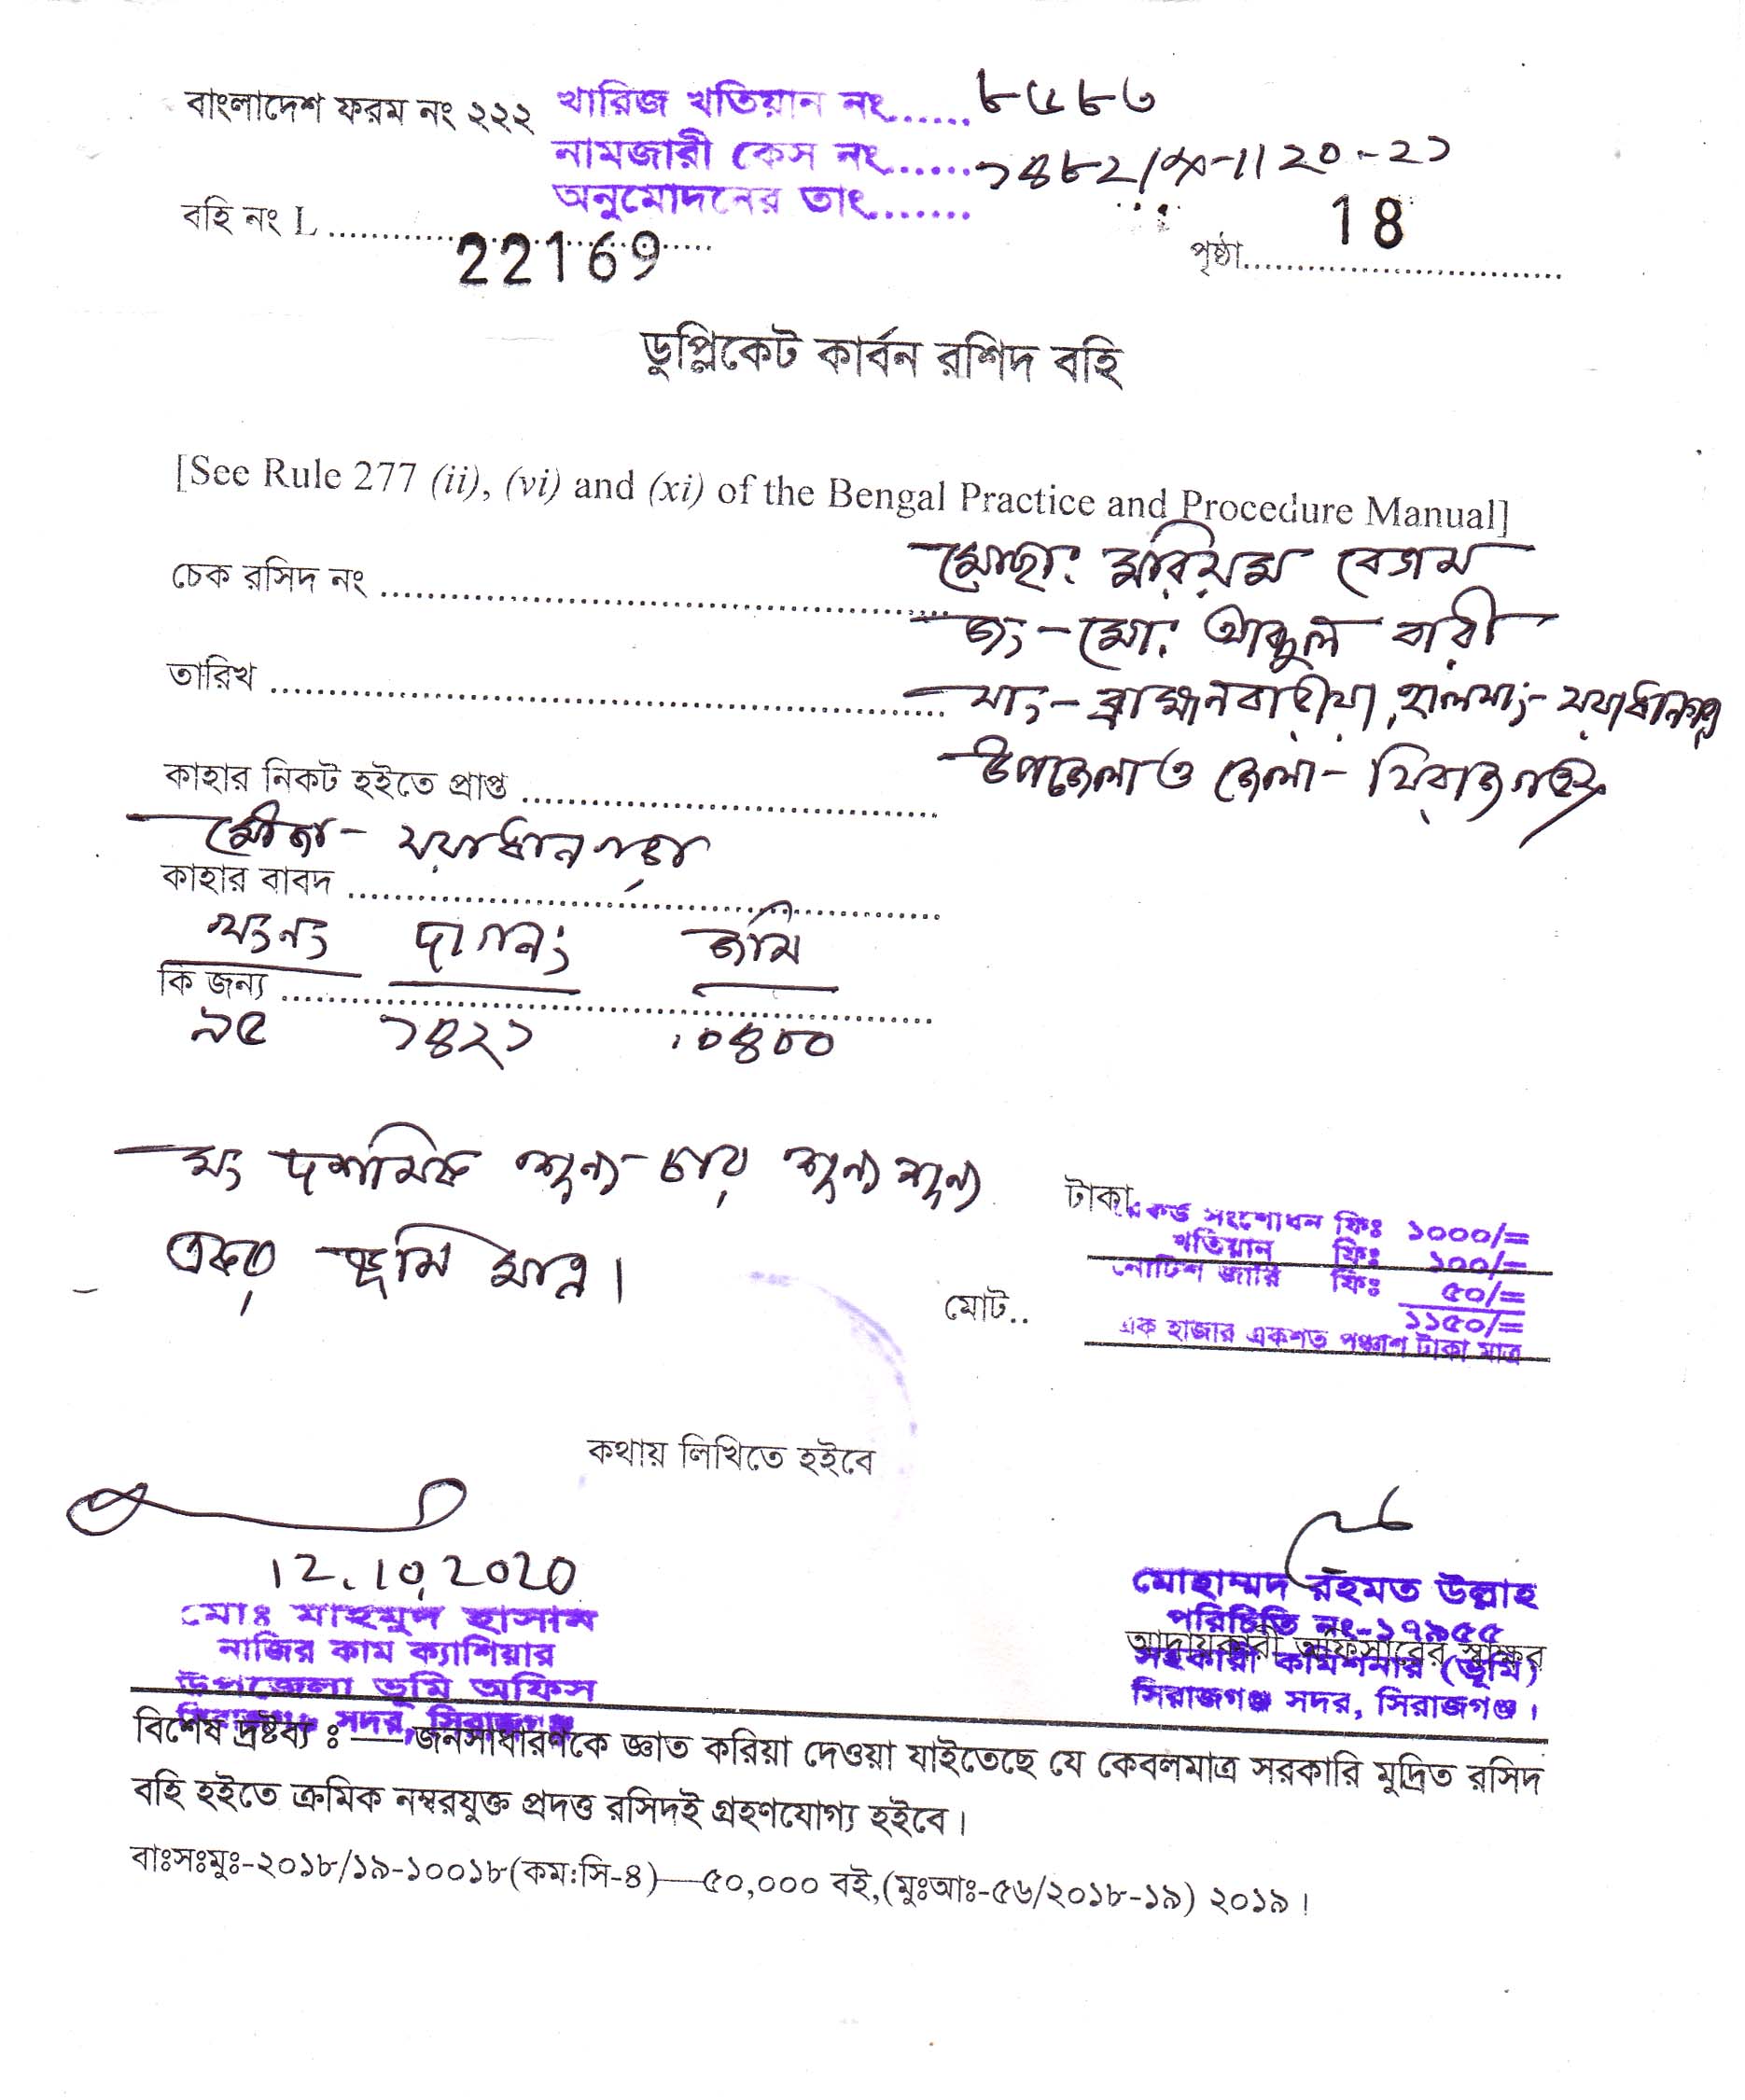 বাংলাদেশ ফরম নং ২২২
খারিজ খতিয়ান নং...... ৮৫৮৬
নামজারী কেস নং...... ১৪৮২/
-১১ ২০-২১
অনুমোদনের তাং.......
বহি নং L ........ 22169
পৃষ্ঠা........ 18
ডুপ্লিকেট কার্বন রশিদ বহি
[See Rule 277 (ii), (vi) and (xi) of the Bengal Practice and Procedure Manual]
মোছা: মরিয়ম বেগম
চেক রসিদ নং ........
জং-মো: আব্দুল বারী
তারিখ ........
সাং-ব্রাহ্মনবাড়ীয়া, হালসাং-
উপজেলা ও জেলা- সিরাজগঞ্জ
কাহার নিকট হইতে প্রাপ্ত ........
মৌজা- সয়াধানগড়া
কাহার বাবদ ........
খং নং দাগ নং জমি
কি জন্য ........
৯৫ ১৪২১ .০৪০০
মং দশমিক শূন্য চার শূন্য শূন্য
একর জমি মাত্র।
টাকা
রেকর্ড সংশোধন ফিঃ ১০০০/=
খতিয়ান ফিঃ ১০০/=
নোটিশ জারি ফিঃ ৫০/=
১১৫০/=
মোট..
এক হাজার একশত পঞ্চাশ টাকা মাত্র
কথায় লিখিতে হইবে
12.10.2020
মোঃ মাহমুদ হাসান
নাজির কাম ক্যাশিয়ার
উপজেলা ভূমি অফিস
সিরাজগঞ্জ সদর, সিরাজগঞ্জ
মোহাম্মদ রহমত উল্লাহ
পরিচিতি নং-১৭৯৫৫
আদায়কারী অফিসারের স্বাক্ষর
সহকারী কমিশনার (ভূমি)
সিরাজগঞ্জ সদর, সিরাজগঞ্জ।
বিশেষ দ্রষ্টব্য ঃ—জনসাধারণকে জ্ঞাত করিয়া দেওয়া যাইতেছে যে কেবলমাত্র সরকারি মুদ্রিত রসিদ
বহি হইতে ক্রমিক নম্বরযুক্ত প্রদত্ত রসিদই গ্রহণযোগ্য হইবে।
বাঃসঃমুঃ-২০১৮/১৯-১০০১৮(কম:সি-৪)—৫০,০০০ বই,(মুঃআঃ-৫৬/২০১৮-১৯) ২০১৯।